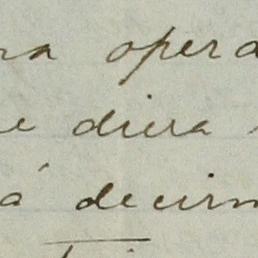 ra opera
e diera
á decirm